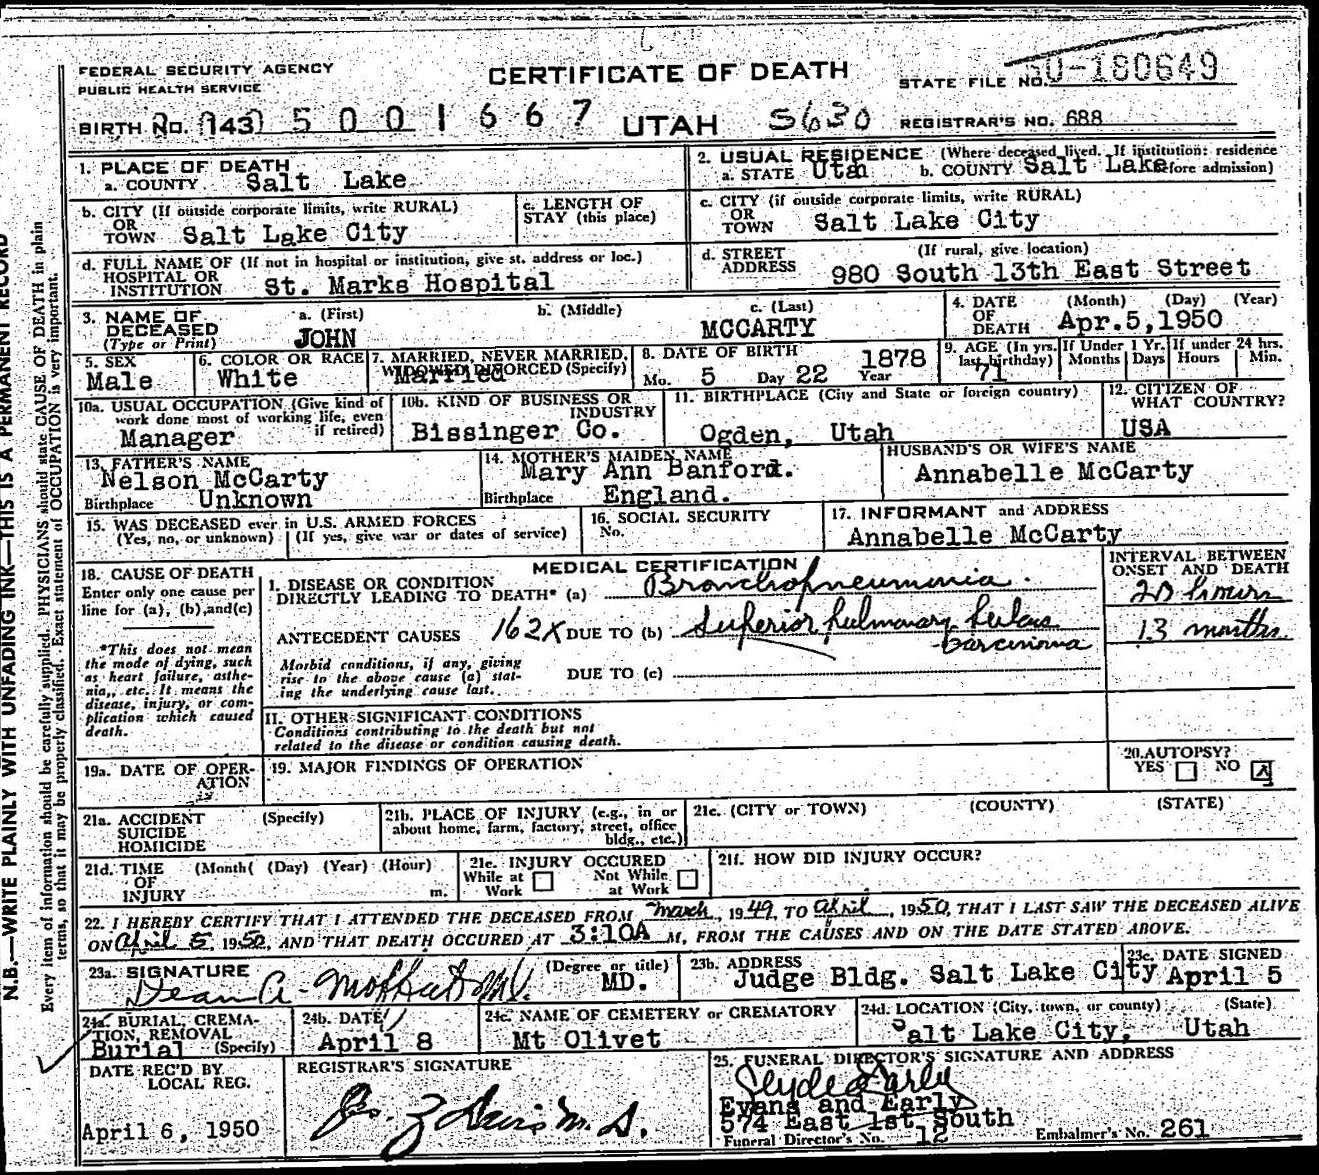 FEDERAL SECURITY AGENCY
PUBLIC HEALTH SERVICE
CERTIFICATE OF DEATH
STATE FILE NO. 0-180649
BIRTH NO. 143 5001667 UTAH S630 REGISTRAR'S NO. 688
N.B.—WRITE PLAINLY WITH UNFADING INK—THIS IS A PERMANENT RECORD
Every item of information should be carefully supplied. PHYSICIANS should state CAUSE OF DEATH in plain
terms, so that it may be properly classified. Exact statement of OCCUPATION is very important.
1. PLACE OF DEATH
a. COUNTY Salt Lake
2. USUAL RESIDENCE (Where deceased lived. If institution: residence before admission)
a. STATE Utah b. COUNTY Salt Lake
b. CITY (If outside corporate limits, write RURAL)
OR
TOWN Salt Lake City
c. LENGTH OF
STAY (this place)
c. CITY (if outside corporate limits, write RURAL)
OR
TOWN Salt Lake City
d. FULL NAME OF (If not in hospital or institution, give st. address or loc.)
HOSPITAL OR
INSTITUTION St. Marks Hospital
d. STREET
ADDRESS
(If rural, give location)
980 South 13th East Street
3. NAME OF
DECEASED
(Type or Print)
a. (First)
JOHN
b. (Middle)
c. (Last)
MCCARTY
4. DATE
OF
DEATH
(Month) (Day) (Year)
Apr.5,1950
5. SEX
Male
6. COLOR OR RACE
White
7. MARRIED, NEVER MARRIED,
WIDOWED DIVORCED (Specify)
Married
8. DATE OF BIRTH
Mo. 5 Day 22 Year 1878
9. AGE (In yrs.
last birthday)
71
If Under 1 Yr.
Months Days
If under 24 hrs.
Hours Min.
10a. USUAL OCCUPATION (Give kind of
work done most of working life, even
if retired)
Manager
10b. KIND OF BUSINESS OR
INDUSTRY
Bissinger Co.
11. BIRTHPLACE (City and State or foreign country)
Ogden, Utah
12. CITIZEN OF
WHAT COUNTRY?
USA
13. FATHER'S NAME
Nelson McCarty
Birthplace Unknown
14. MOTHER'S MAIDEN NAME
Mary Ann Banford.
Birthplace England.
HUSBAND'S OR WIFE'S NAME
Annabelle McCarty
15. WAS DECEASED ever in U.S. ARMED FORCES
(Yes, no, or unknown) (If yes, give war or dates of service)
16. SOCIAL SECURITY
No.
17. INFORMANT and ADDRESS
Annabelle McCarty
18. CAUSE OF DEATH
Enter only one cause per
line for (a), (b), and (c)
*This does not mean
the mode of dying, such
as heart failure, asthe-
nia, etc. It means the
disease, injury, or com-
plication which caused
death.
MEDICAL CERTIFICATION
INTERVAL BETWEEN
ONSET AND DEATH
1. DISEASE OR CONDITION
DIRECTLY LEADING TO DEATH* (a) Bronchopneumonia. 20 hours
ANTECEDENT CAUSES 162X DUE TO (b) Superior pulmonary sulcus 13 months.
carcinoma
Morbid conditions, if any, giving
rise to the above cause (a) stat-
ing the underlying cause last.
DUE TO (c)
II. OTHER SIGNIFICANT CONDITIONS
Conditions contributing to the death but not
related to the disease or condition causing death.
19a. DATE OF OPER-
ATION
19. MAJOR FINDINGS OF OPERATION
20. AUTOPSY?
YES NO X
21a. ACCIDENT
SUICIDE
HOMICIDE
(Specify)
21b. PLACE OF INJURY (e.g., in or
about home, farm, factory, street, office
bldg., etc.)
21c. (CITY or TOWN) (COUNTY) (STATE)
21d. TIME
OF
INJURY
(Month) (Day) (Year) (Hour)
m.
21e. INJURY OCCURED
While at
Work
Not While
at Work
21f. HOW DID INJURY OCCUR?
22. I HEREBY CERTIFY THAT I ATTENDED THE DECEASED FROM March, 1949, TO April, 1950, THAT I LAST SAW THE DECEASED ALIVE
ON April 5 1950, AND THAT DEATH OCCURED AT 3:10A M, FROM THE CAUSES AND ON THE DATE STATED ABOVE.
23a. SIGNATURE
Dean A. Moffat M.D.
(Degree or title)
MD.
23b. ADDRESS
Judge Bldg. Salt Lake City
23c. DATE SIGNED
April 5
24a. BURIAL, CREMA-
TION, REMOVAL
Burial (Specify)
24b. DATE
April 8
24c. NAME OF CEMETERY or CREMATORY
Mt Olivet
24d. LOCATION (City, town, or county) (State)
Salt Lake City, Utah
DATE REC'D BY
LOCAL REG.
April 6, 1950
REGISTRAR'S SIGNATURE
25. FUNERAL DIRECTOR'S SIGNATURE AND ADDRESS
Clyde Early
Evans and Early
574 East 1st South
Funeral Director's No. 12 Embalmer's No. 261